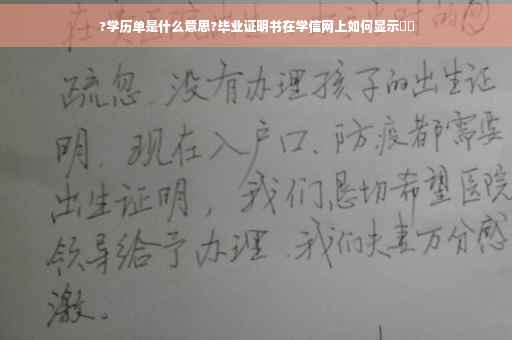 ?学历单是什么意思?毕业证明书在学信网上如何显示
疏忽.没有办理孩子的出生证
明.现在入户口、防疫都需要
出生证明,我们恳切希望医院
领导给予办理.我们夫妻万分感
激。